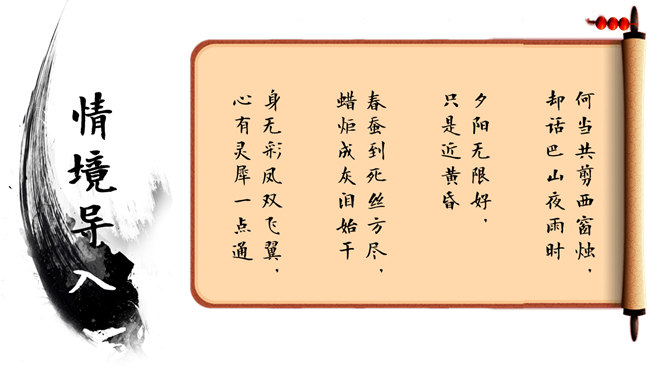 情境导入一
何当共剪西窗烛，
却话巴山夜雨时
夕阳无限好，
只是近黄昏
春蚕到死丝方尽，
蜡炬成灰泪始干
身无彩凤双飞翼，
心有灵犀一点通